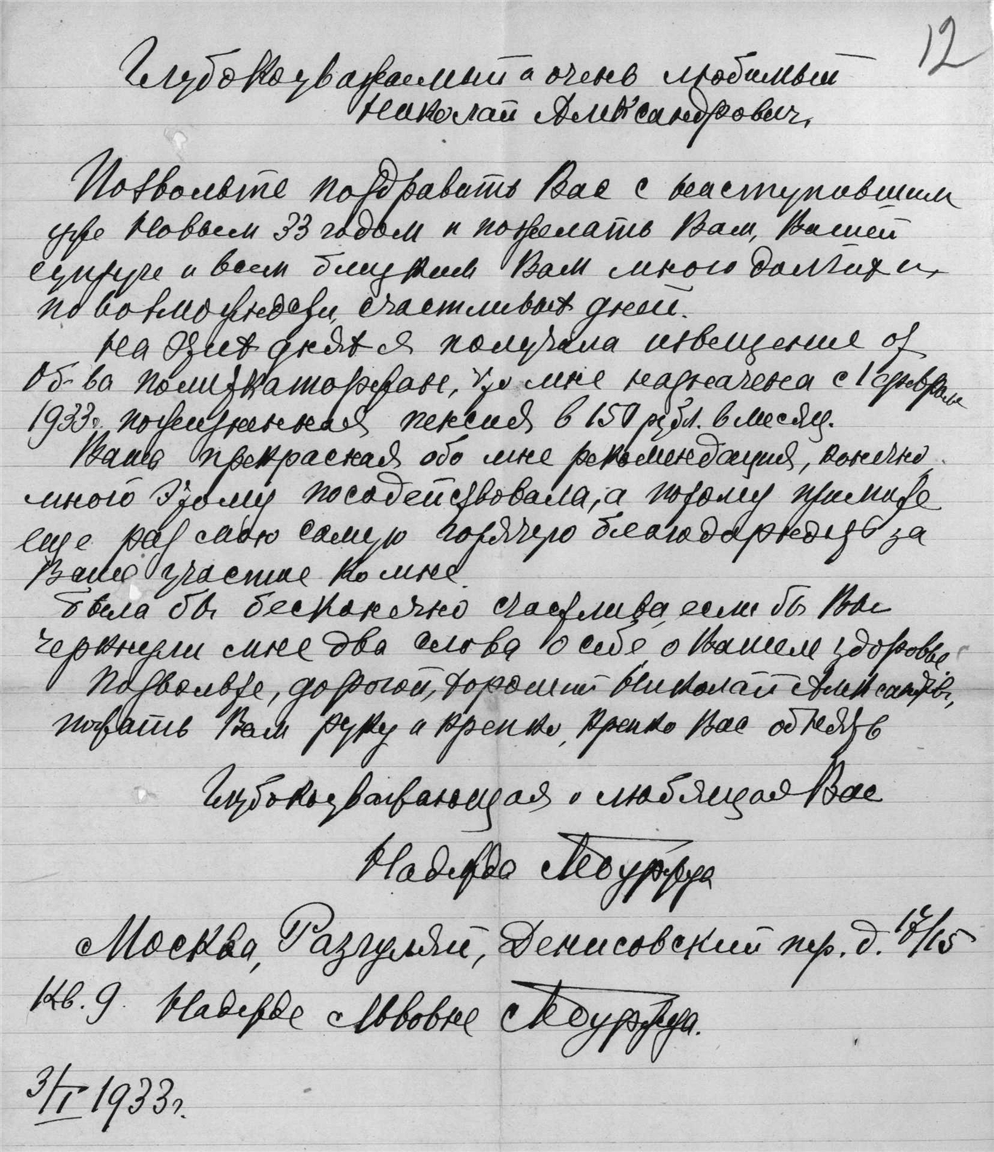 12
Глубокоуважаемый и очень любимый
Николай Александрович,
Позвольте поздравить Вас с наступившим
уже Новым 33 годом и пожелать Вам, Вашей
супруге и всем близким Вам много долгих и,
по возможности, счастливых дней.
На этих днях я получила извещение от
Об-ва политкаторжан, что мне назначена с 1 февраля
1933г. пожизненная пенсия в 150 рубл. в месяц.
Ваша прекрасная обо мне рекомендация, конечно
много этому посодействовала, а потому примите
еще раз мою самую горячую благодарность за
Ваше участие ко мне.
Была бы бесконечно счастлива, если бы Вы
черкнули мне два слова о себе о Вашем здоровье
Позвольте, дорогой, хороший Николай Александров,
пожать Вам руку и крепко, крепко Вас обнять
Глубокоуважающая и любящая Вас
Надежда
Москва, Разгуляй, Денисовский пер. д. 17/15
Кв. 9. Надежде Львовне
3/I 1933г.